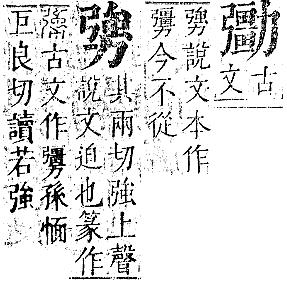 古
文
說文本作
今不從
其兩切強上聲
說文迫也篆作
古文作孫愐
巨良切讀若強